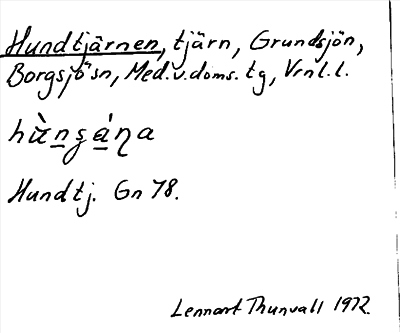 Hundtjärnen, tjärn, Grundsjön,
Borgsjö sn, Med.v.doms.tg, Vrnl.l.
Hundtj. Gn 78.
Lennart Thunvall 1972.